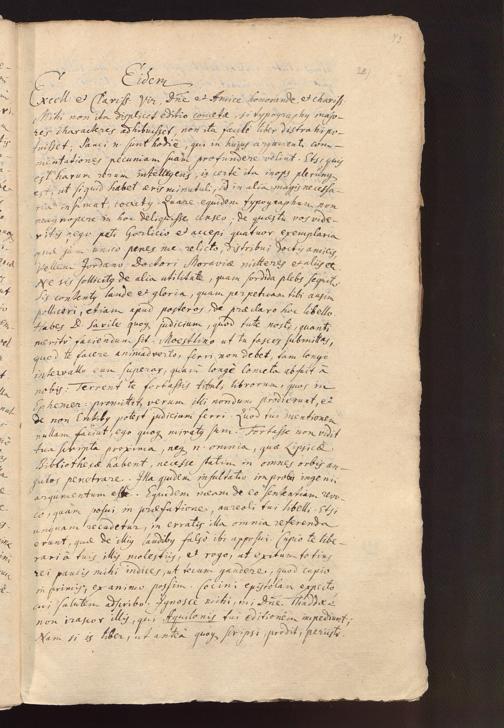 Eidem
Excell et Clariss Vir, Dñe et Amice honorande et chariss.
Mihi non ita displicet editio cometæ, si typographus majo-
res characteres adhibuisset, non ita facile liber distrahi po-
tuisset, Pauci n. sunt hodie, qui in hujus argumenti com-
mentationes pecuniam suam profundere velint. Etsi quis
est harum rerum intelligens, is certe ita inops plerumq
est, ut siquid habet æris minutuli, id in alia magis necessa-
ria insumat, cogatur. Quare equidem typographum non
magnopere in hoc deliquisse censeo: de quæstu vos vide-
ritis, ego a Gorlicio accepi quatuor exemplaria
quæ unico penes me relicto, distribui doctis amicis,
Vellem Jordano Doctori Moraviæ mitteres et aliis
Ne sis sollicitus de alia utilitate, quam sordida plebs sequitur,
sis contentus laude et gloria, quam perpetuam tibi ausim
polliceri, etiam apud posteros de præclaro hoc libello.
Habes D. Savile quoq judicium, quod tute nosti, quanti
merito faciendum sit. Moestlino ut tu fasces submittas,
quod te facere animadverto, ferri non debet, tam longe
intervallo eum superas, quam longe Cometa abfuit a
nobis: Terrent te fortassis tituli librorum, quos in
Ephemer: promittit, verum illi nondum prodierunt, et
de non Editis potest judicium ferri. Quod tui mentionem
nullam faciat, ego quoq miratus sum. Fortasse non vidit
tua scripta proxima, neq n. omnia, quæ Lipsicæ
Bibliothecæ habent, necesse statim in omnes orbis an-
gulos penetrare. Illa quidem insultatio improbi ingenii
argumentum est. Equidem meam de eo sententiam revo-
co, quam posui in præfatione, aureoli tui libelli. Etsi
unquam recudetur, in erratis illa omnia referenda
erunt, quæ de illis laudibus falso ibi apposui. Cupio te libe-
rari a tuis illis molestiis, et rogo, ut exitum totius
rei paucis mihi indices, ut tecum gaudere, quod cupio
inprimis, ex animo possim. Socini epistolam expecto
cui salutem adscribo. Ignosce mihi, mi Dñe. Thaddæe
non irascor illis, qui Aquilonis tui editionem impediunt;
Nam si is liber, ut antea quoq scripsi, prodit, peristi.